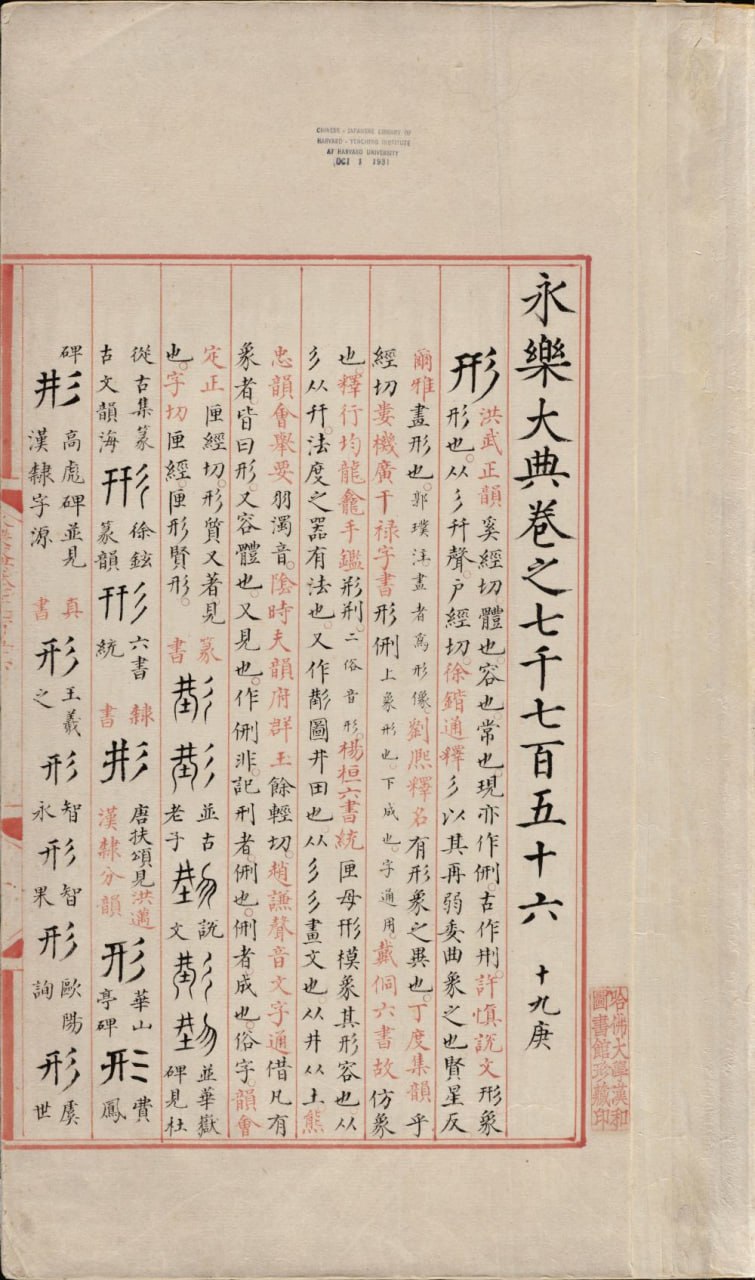 永樂大典卷之七千七百五十六 十九庚
形
洪武正韻奚經切體也。容也。常也。現亦作侀。古作㓝。許慎説文形象
形也。从彡幵聲。戶經切。徐鍇通釋彡以其再弱委曲象之也賢星反
爾雅畫形也。郭璞注畫者爲形像。劉熈釋名有形象之異也。丁度集韻乎
經切婁機廣干禄字書形侀上象形也。下成也。字通用。戴侗六書故仿象
也。釋行均龍龕手鑑形㓝。二俗音形。楊桓六書統匣母形模象其形容也。从
彡从幵。法度之器有法也。又作圖井田也。从彡彡畫文也从井从土。熊
忠韻會舉要羽濁音。陰時夫韻府群玉餘輕切。趙謙聲音文字通借凡有
象者。皆曰形。又容體也。又見也。作侀非。記刑者。侀也。侀者成也。俗字。韻會
定正匣經切。形質又著見
也。字切匣經。匣形賢形。
篆書
並古老子
説文
並華嶽碑見杜
從古集篆古文韻海
形
徐鉉篆韻
形
六書統
隷書
形
唐扶頌見洪邁漢隸分韻
形
華山亭碑
形
費鳳碑
形
高彪碑並見漢隸字源
真書
形
王羲之
形
智永
形
智果
形
歐陽詢
形
虞世